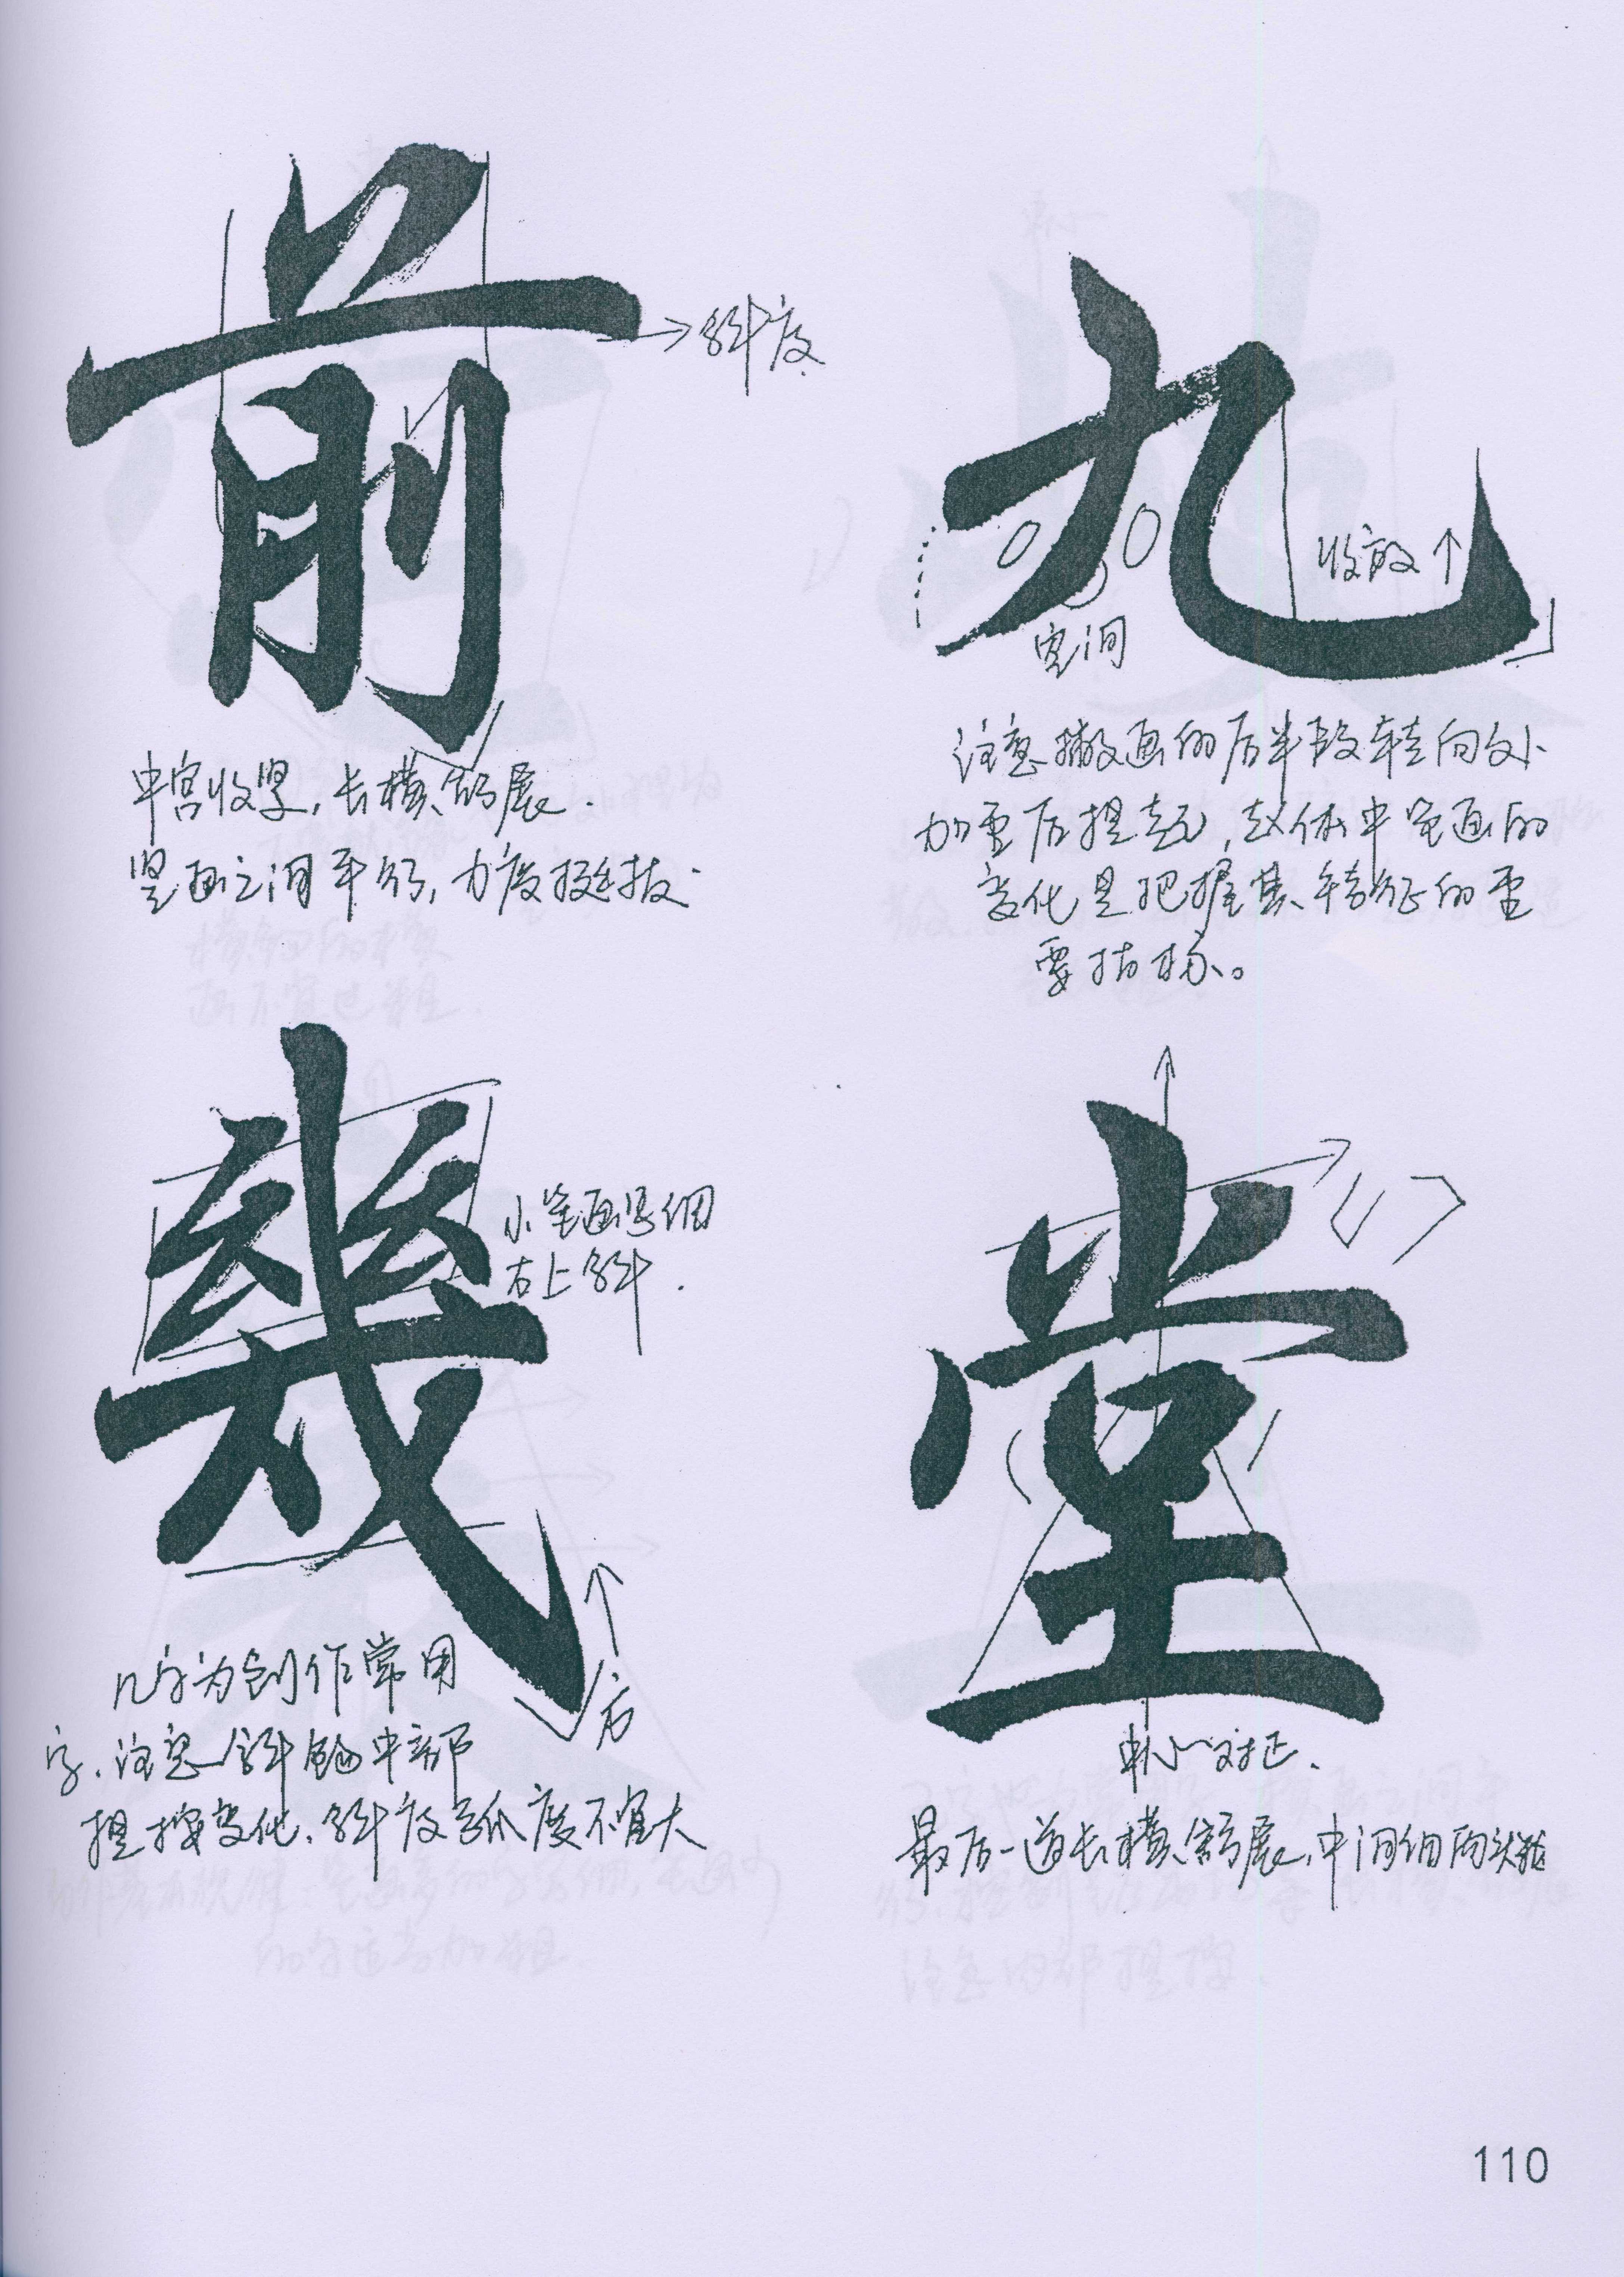 前
斜度
中宫收紧，长横舒展．
竖画之间平行，力度挺拔．
九
收放
空间
注意撇画的后半段转向处
加重后提起，赵体中笔画的
变化是把握其特征的重
要指标。
幾
小笔画写细
右上斜．
几字为创作常用
字．注意斜钩中部
提按变化．斜度弧度不宜大
方
堂
中心对正．
最后一道长横舒展，中间细两头粗
110